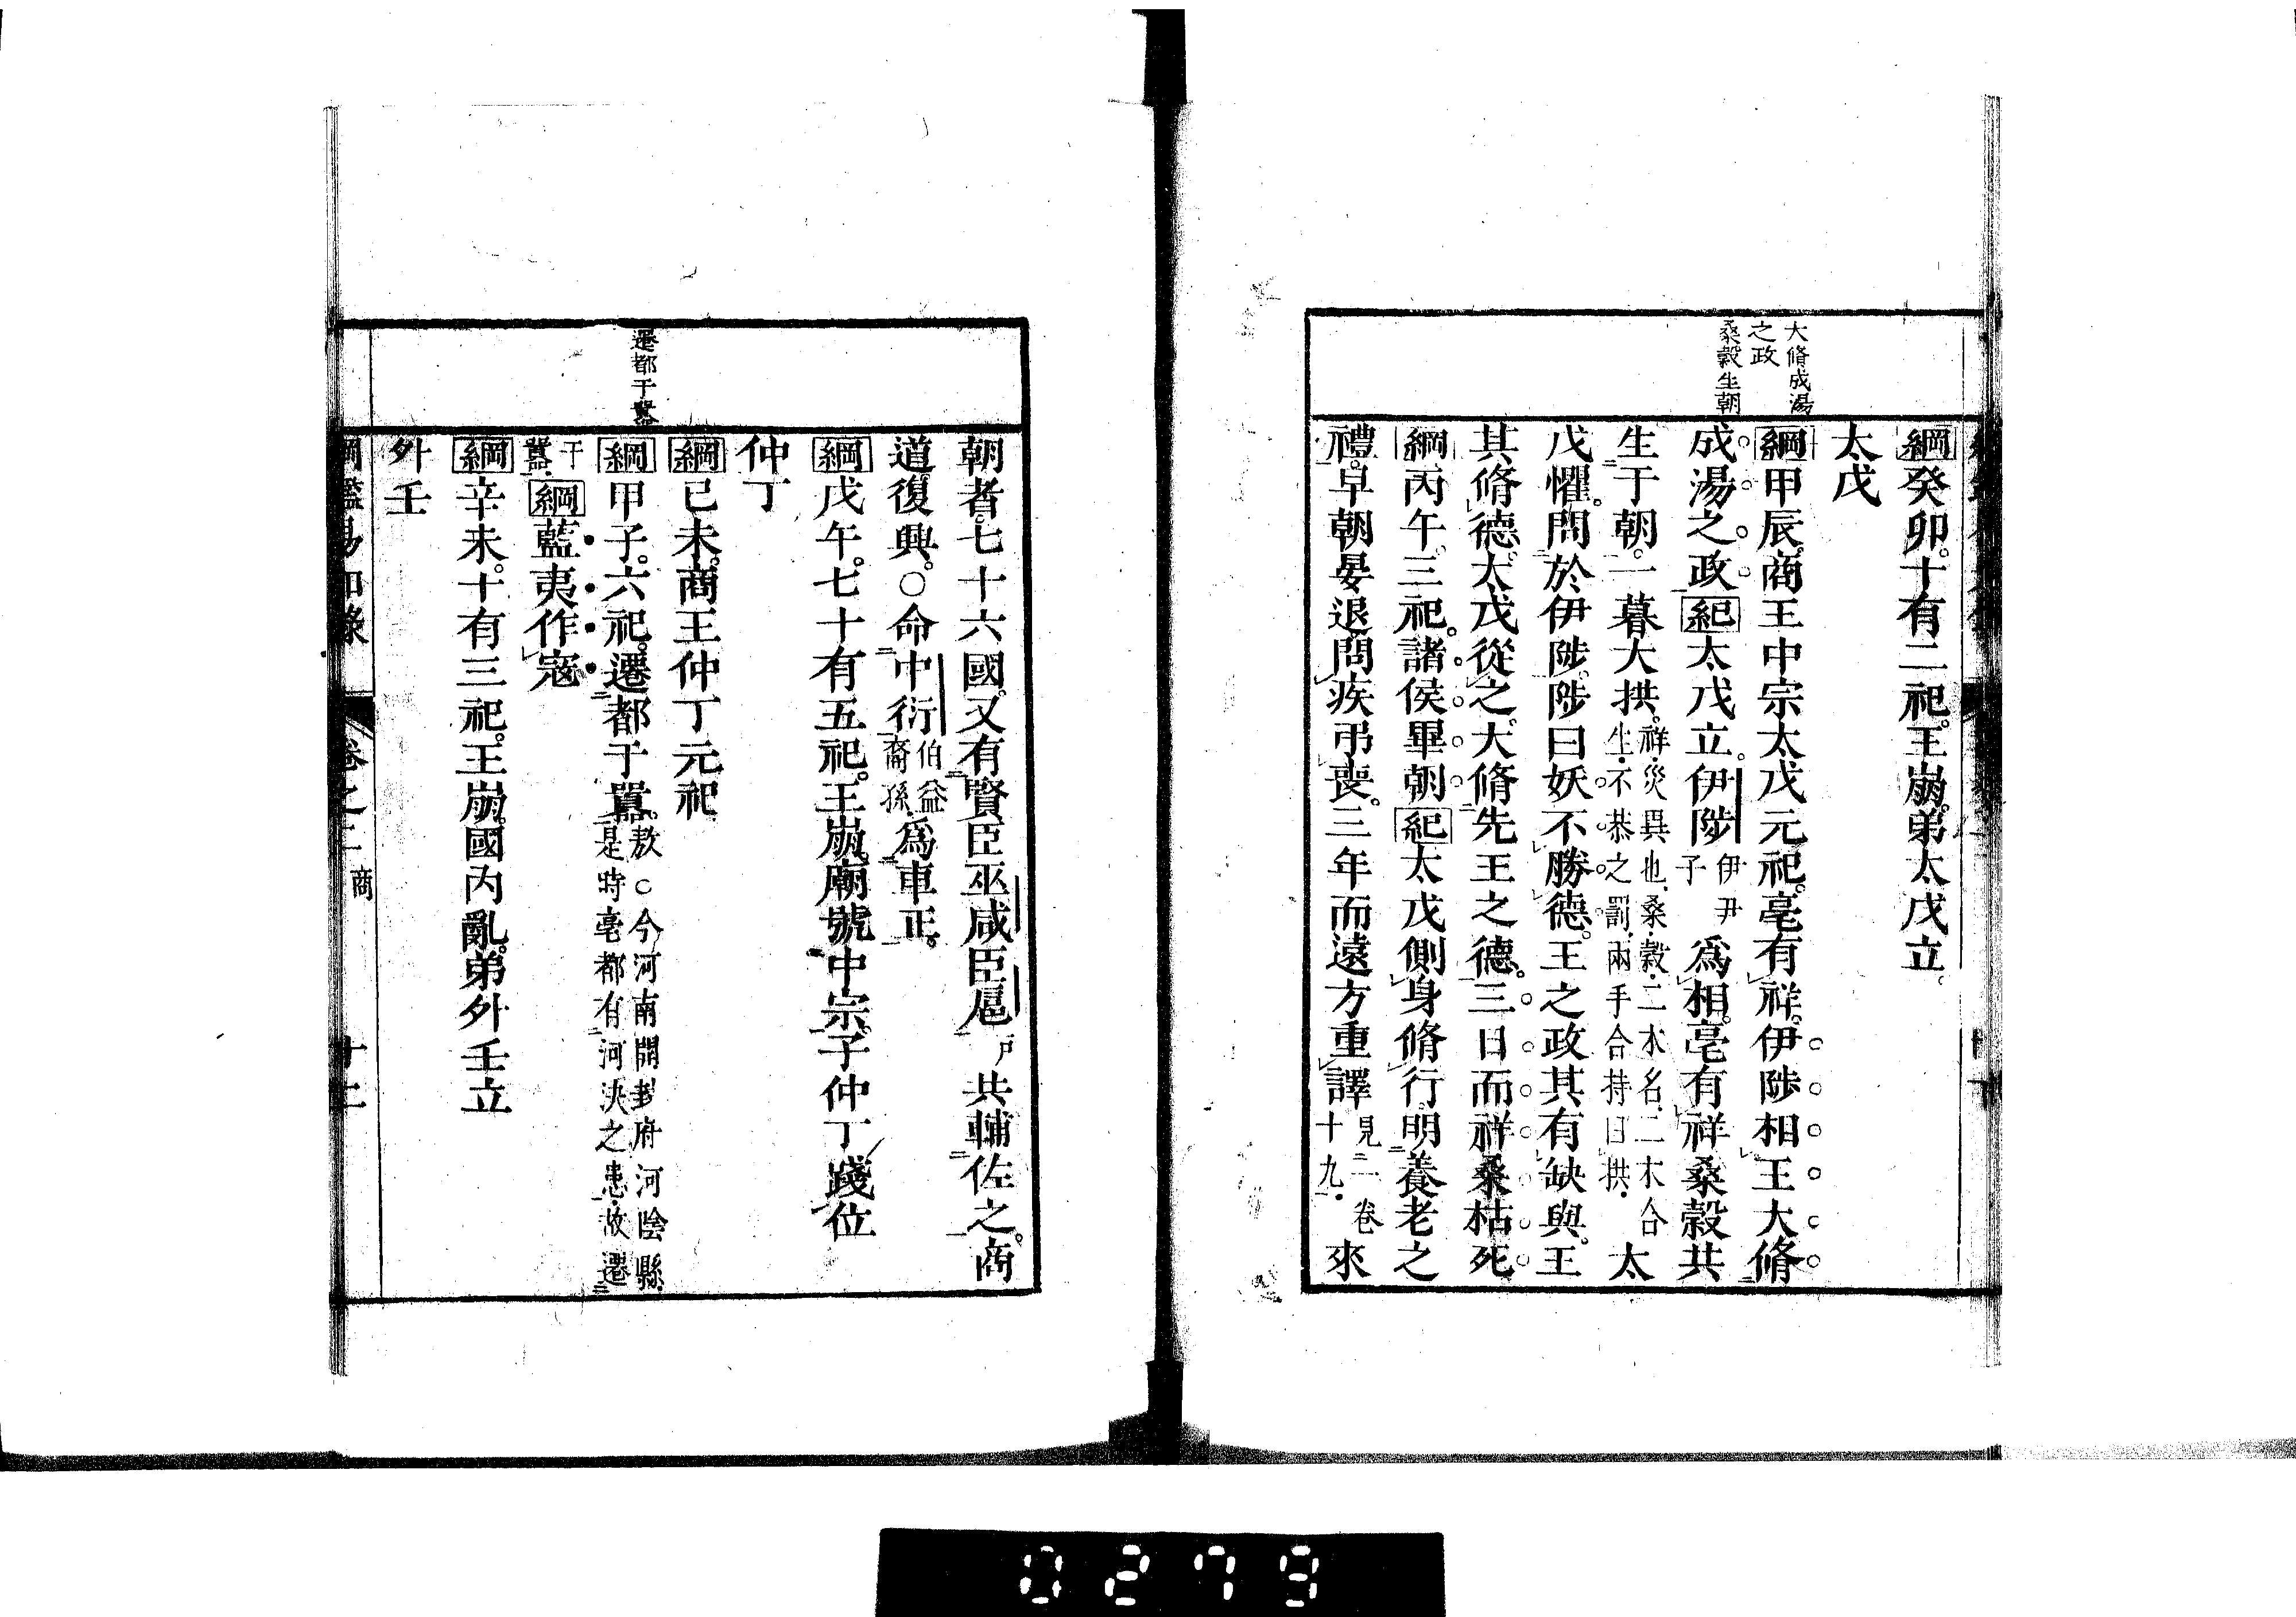 大脩成湯
之政
桑穀生朝
綱癸卯。十有二祀。王崩。弟太戊立。
太戊
綱甲辰。商王中宗太戊元祀。亳有祥。伊陟相王大脩
成湯之政紀太戊立。伊陟伊尹子爲相。亳有祥桑穀共
生于朝。一暮大拱。祥災異也桑穀二木名二木合生不恭之罰兩手合持曰拱太
戊懼。問於伊陟。陟曰妖不勝德。王之政其有缺與。王
其脩德。太戊從之。大脩先王之德。三日而祥桑枯死
綱丙午。三祀。諸侯畢朝紀太戊側身脩行。明養老之
禮。早朝晏退。問疾弔喪。三年而遠方重譯見二卷十九來
遷都于囂
朝者。七十六國。又有賢臣巫咸臣扈戶共輔佐之。商
道。復興。○命中衍伯益裔孫爲車正。
綱戊午。七十有五祀。王崩。廟號中宗。子仲丁踐位
仲丁
綱己未。商王仲丁元祀
綱甲子。六祀。遷都于囂。敖○今河南開封府河陰縣是時亳都有河決之患故遷
于囂綱藍夷作寇
綱辛未。十有三祀。王崩。國內亂。弟外壬立
外壬
綱鑑易知錄 卷之二 商 十二
0279